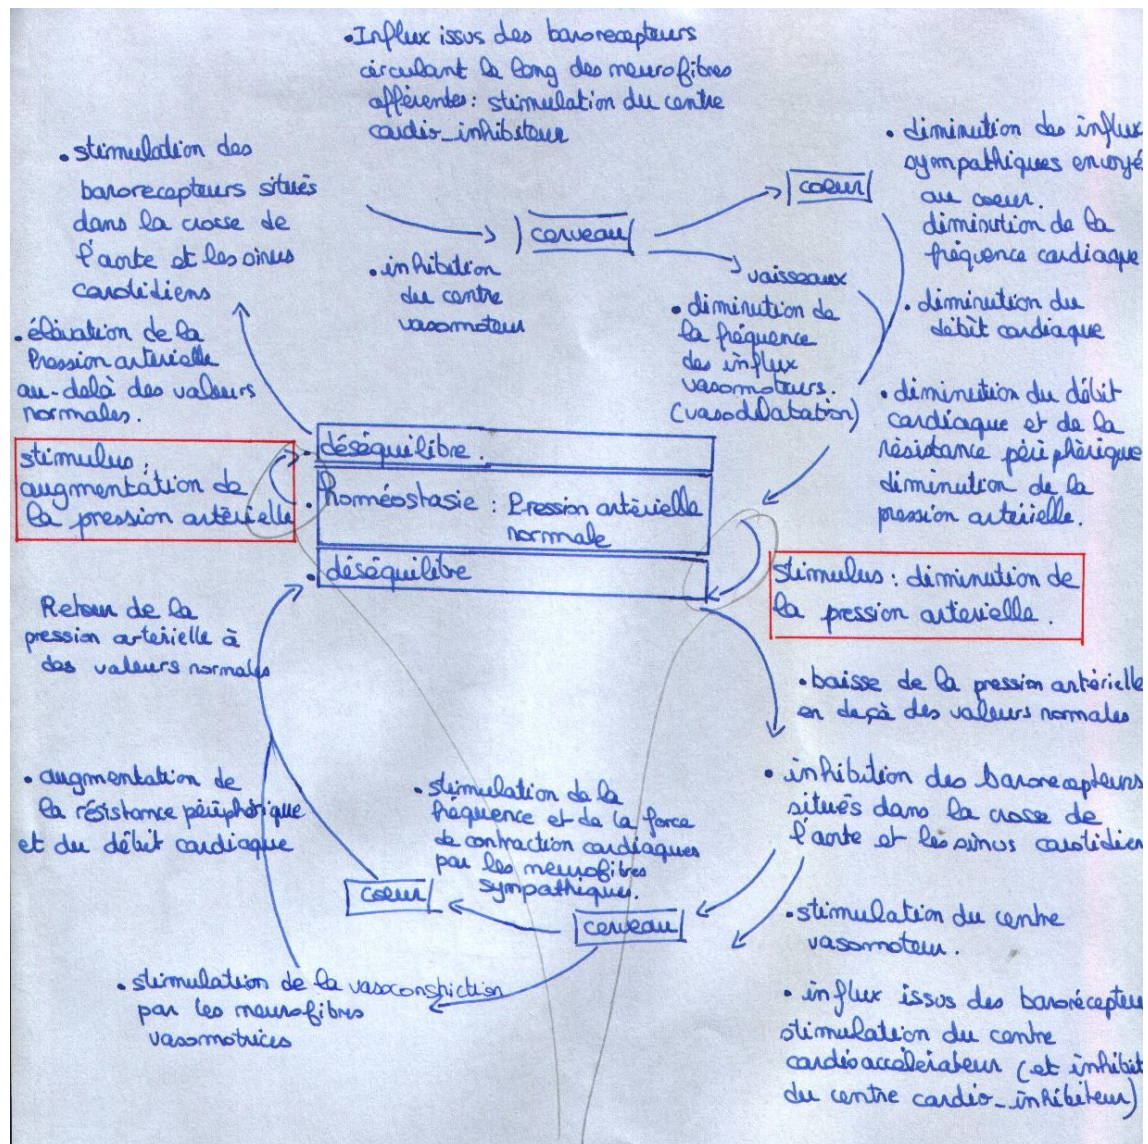 • Influx issus des barorecepteurs
circulant le long des neurofibres
afférentes : stimulation du centre
cardio_inhibiteur
• stimulation des
barorecepteurs situés
dans la crosse de
l'aorte et les sinus
carotidiens
• élévation de la
Pression artérielle
au-delà des valeurs
normales.
cerveau
• inhibition
du centre
vasomoteur
coeur
vaisseaux
• diminution de
la fréquence
des influx
vasomoteurs.
(vasodilatation)
• diminution des influx
sympathiques envoyé
au coeur.
diminution de la
fréquence cardiaque
• diminution du
débit cardiaque
• diminution du débit
cardiaque et de la
résistance périphérique
diminution de la
pression artérielle.
stimulus :
augmentation de
la pression artérielle
• déséquilibre.
• homéostasie : Pression artérielle
normale
• déséquilibre
stimulus : diminution de
la pression artérielle.
Retour de la
pression artérielle à
des valeurs normales
• baisse de la pression artérielle
en deçà des valeurs normales
• inhibition des barorecepteurs
situés dans la crosse de
l'aorte et les sinus carotidien
• augmentation de
la résistance périphérique
et du débit cardiaque
• stimulation de la
fréquence et de la force
de contraction cardiaques
par les neurofibres
sympathiques.
coeur
cerveau
• stimulation du centre
vasomoteur.
• stimulation de la vasoconstriction
par les neurofibres
vasomotrices
• influx issus des barorécepteu
stimulation du centre
cardioaccélérateur (et inhibit
du centre cardio_inhibiteur)